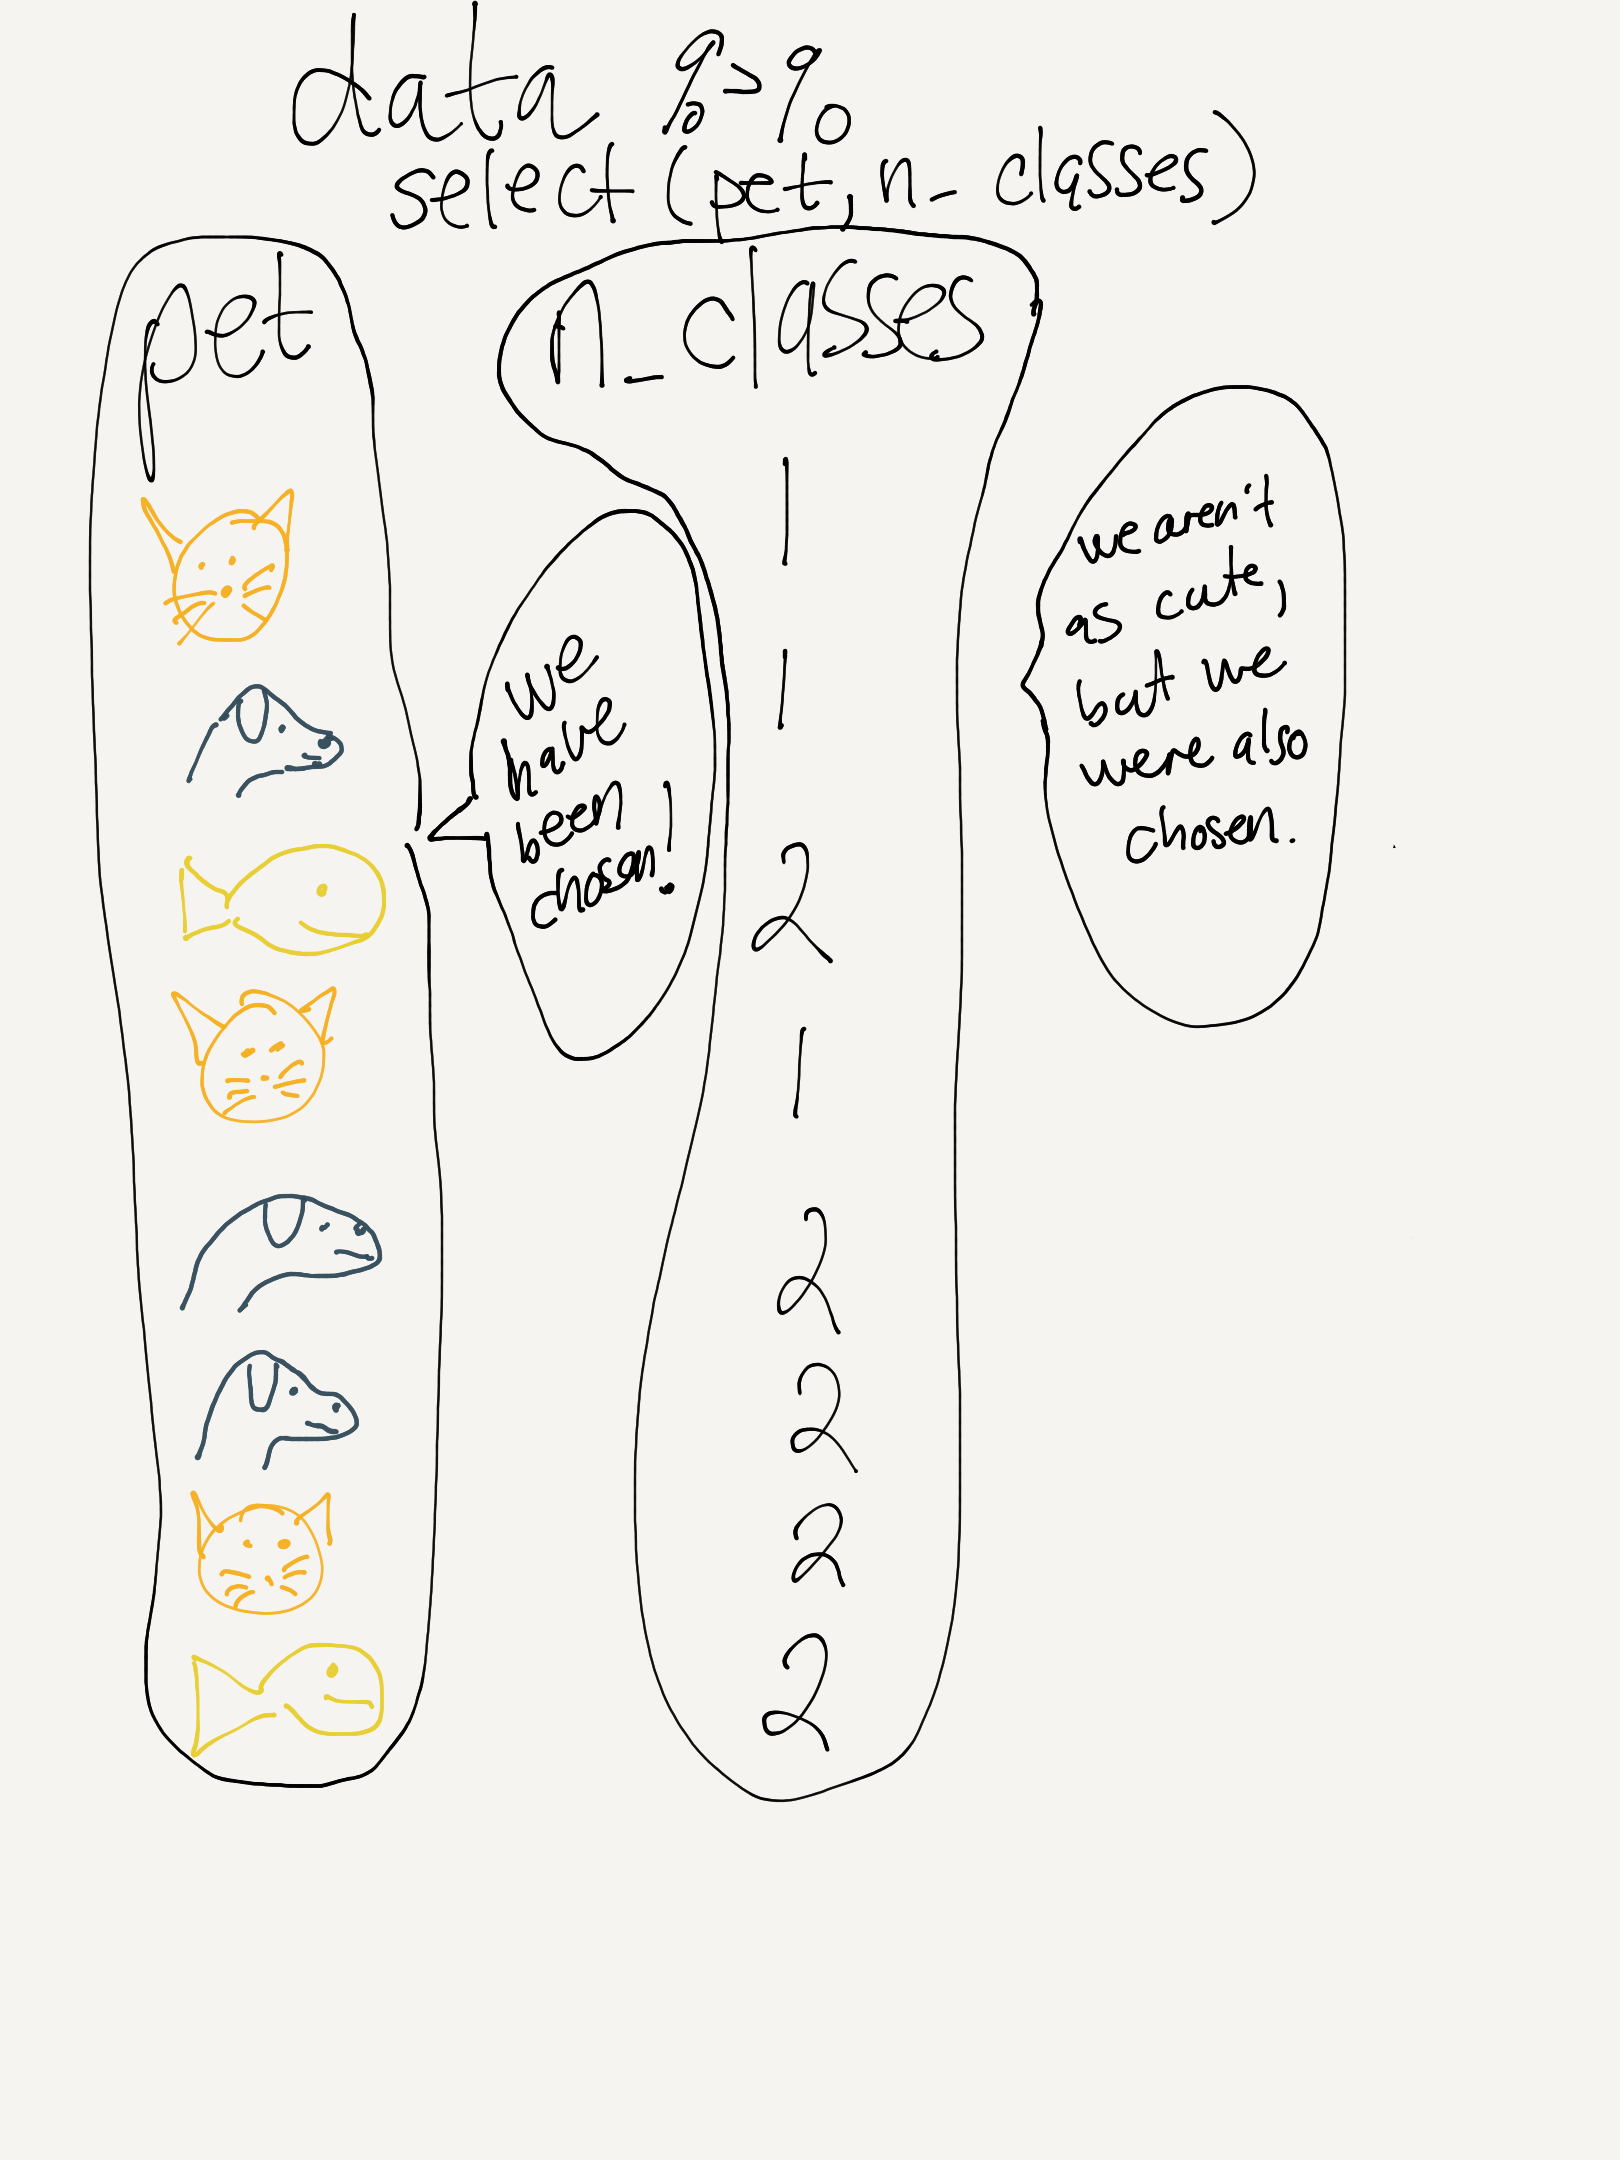 data %>%
select(pet, n_classes)
pet
n_classes
we
have
been
chosen!
1
1
2
1
2
2
2
2
we aren't
as cute,
but we
were also
chosen.